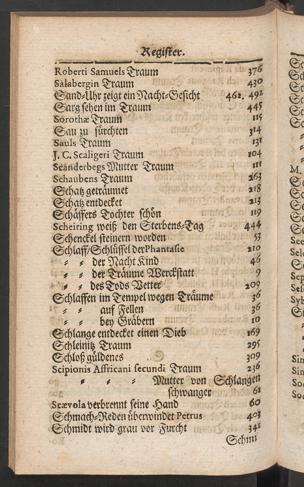 Register.
Roberti Samuels Traum 376
Salabergin Traum 430
Sand-Uhr zeigt ein Nacht-Gesicht 462, 492
Sarg sehen im Traum 445
Sorothæ Traum 115
Sau zu fürchten 314
Sauls Traum 131
J. C. Scaligeri Traum 104
Scanderbegs Mutter Traum 111
Schaubens Traum 263
Schatz geträumet 218
Schatz entdecket 213
Schäffers Tochter schön 119
Scheiring weiß den Sterbens-Tag 444
Schenckel steinern worden 53
Schlaff/ Schlüssel der Phantasie 210
" " der Nacht Kind 46
" " der Träume Werkstatt 9
" " des Tods Vetter 209
Schlaffen im Tempel wegen Träume 36
" " auf Fellen 36
" " bey Gräbern 10
Schlange entdecket einen Dieb 169
Schleinitz Traum 295
Schloß güldenes 309
Scipionis Affricani secundi Traum 236
" " " Mutter von Schlangen
schwanger 61
Scævola verbrennt seine Hand 60
Schmach-Reden überwindet Petrus 403
Schmidt wird grau vor Furcht 341
Schmi